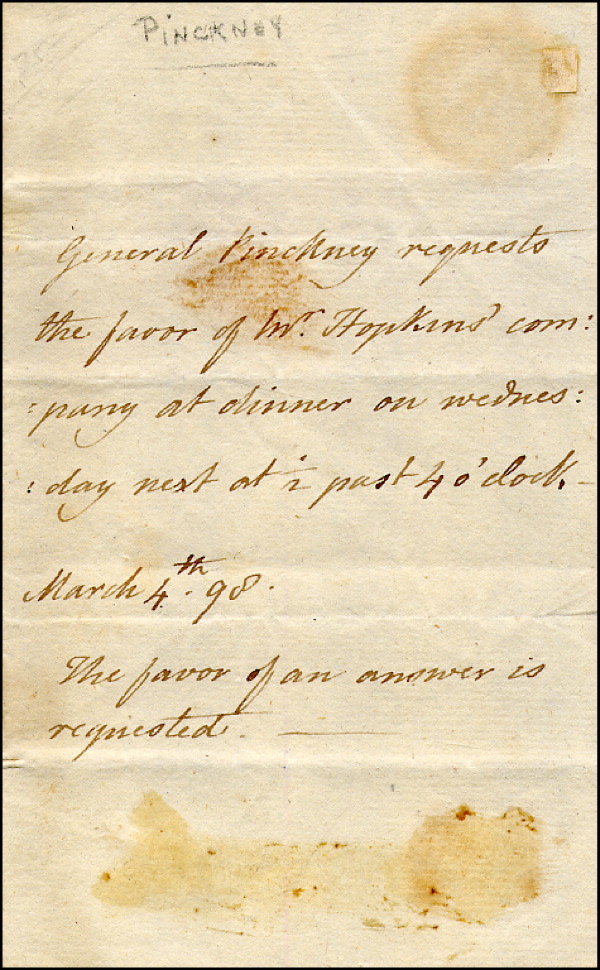 PINCKNEY
General Pinckney requests
the favor of Mr. Hopkins' com:
:pany at dinner on wednes:
:day next at ½ past 4 o'clock. –
March 4th. 98.
The favor of an answer is
requested. —